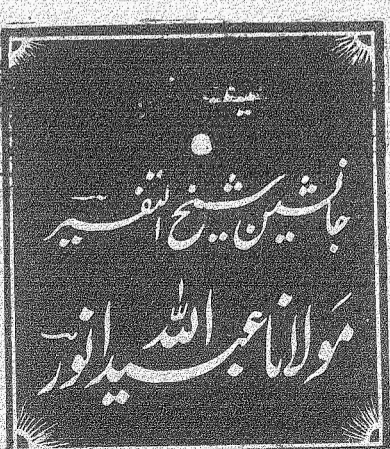 جانشین شیخ التفسیر
مولانا عبید اللہ انور